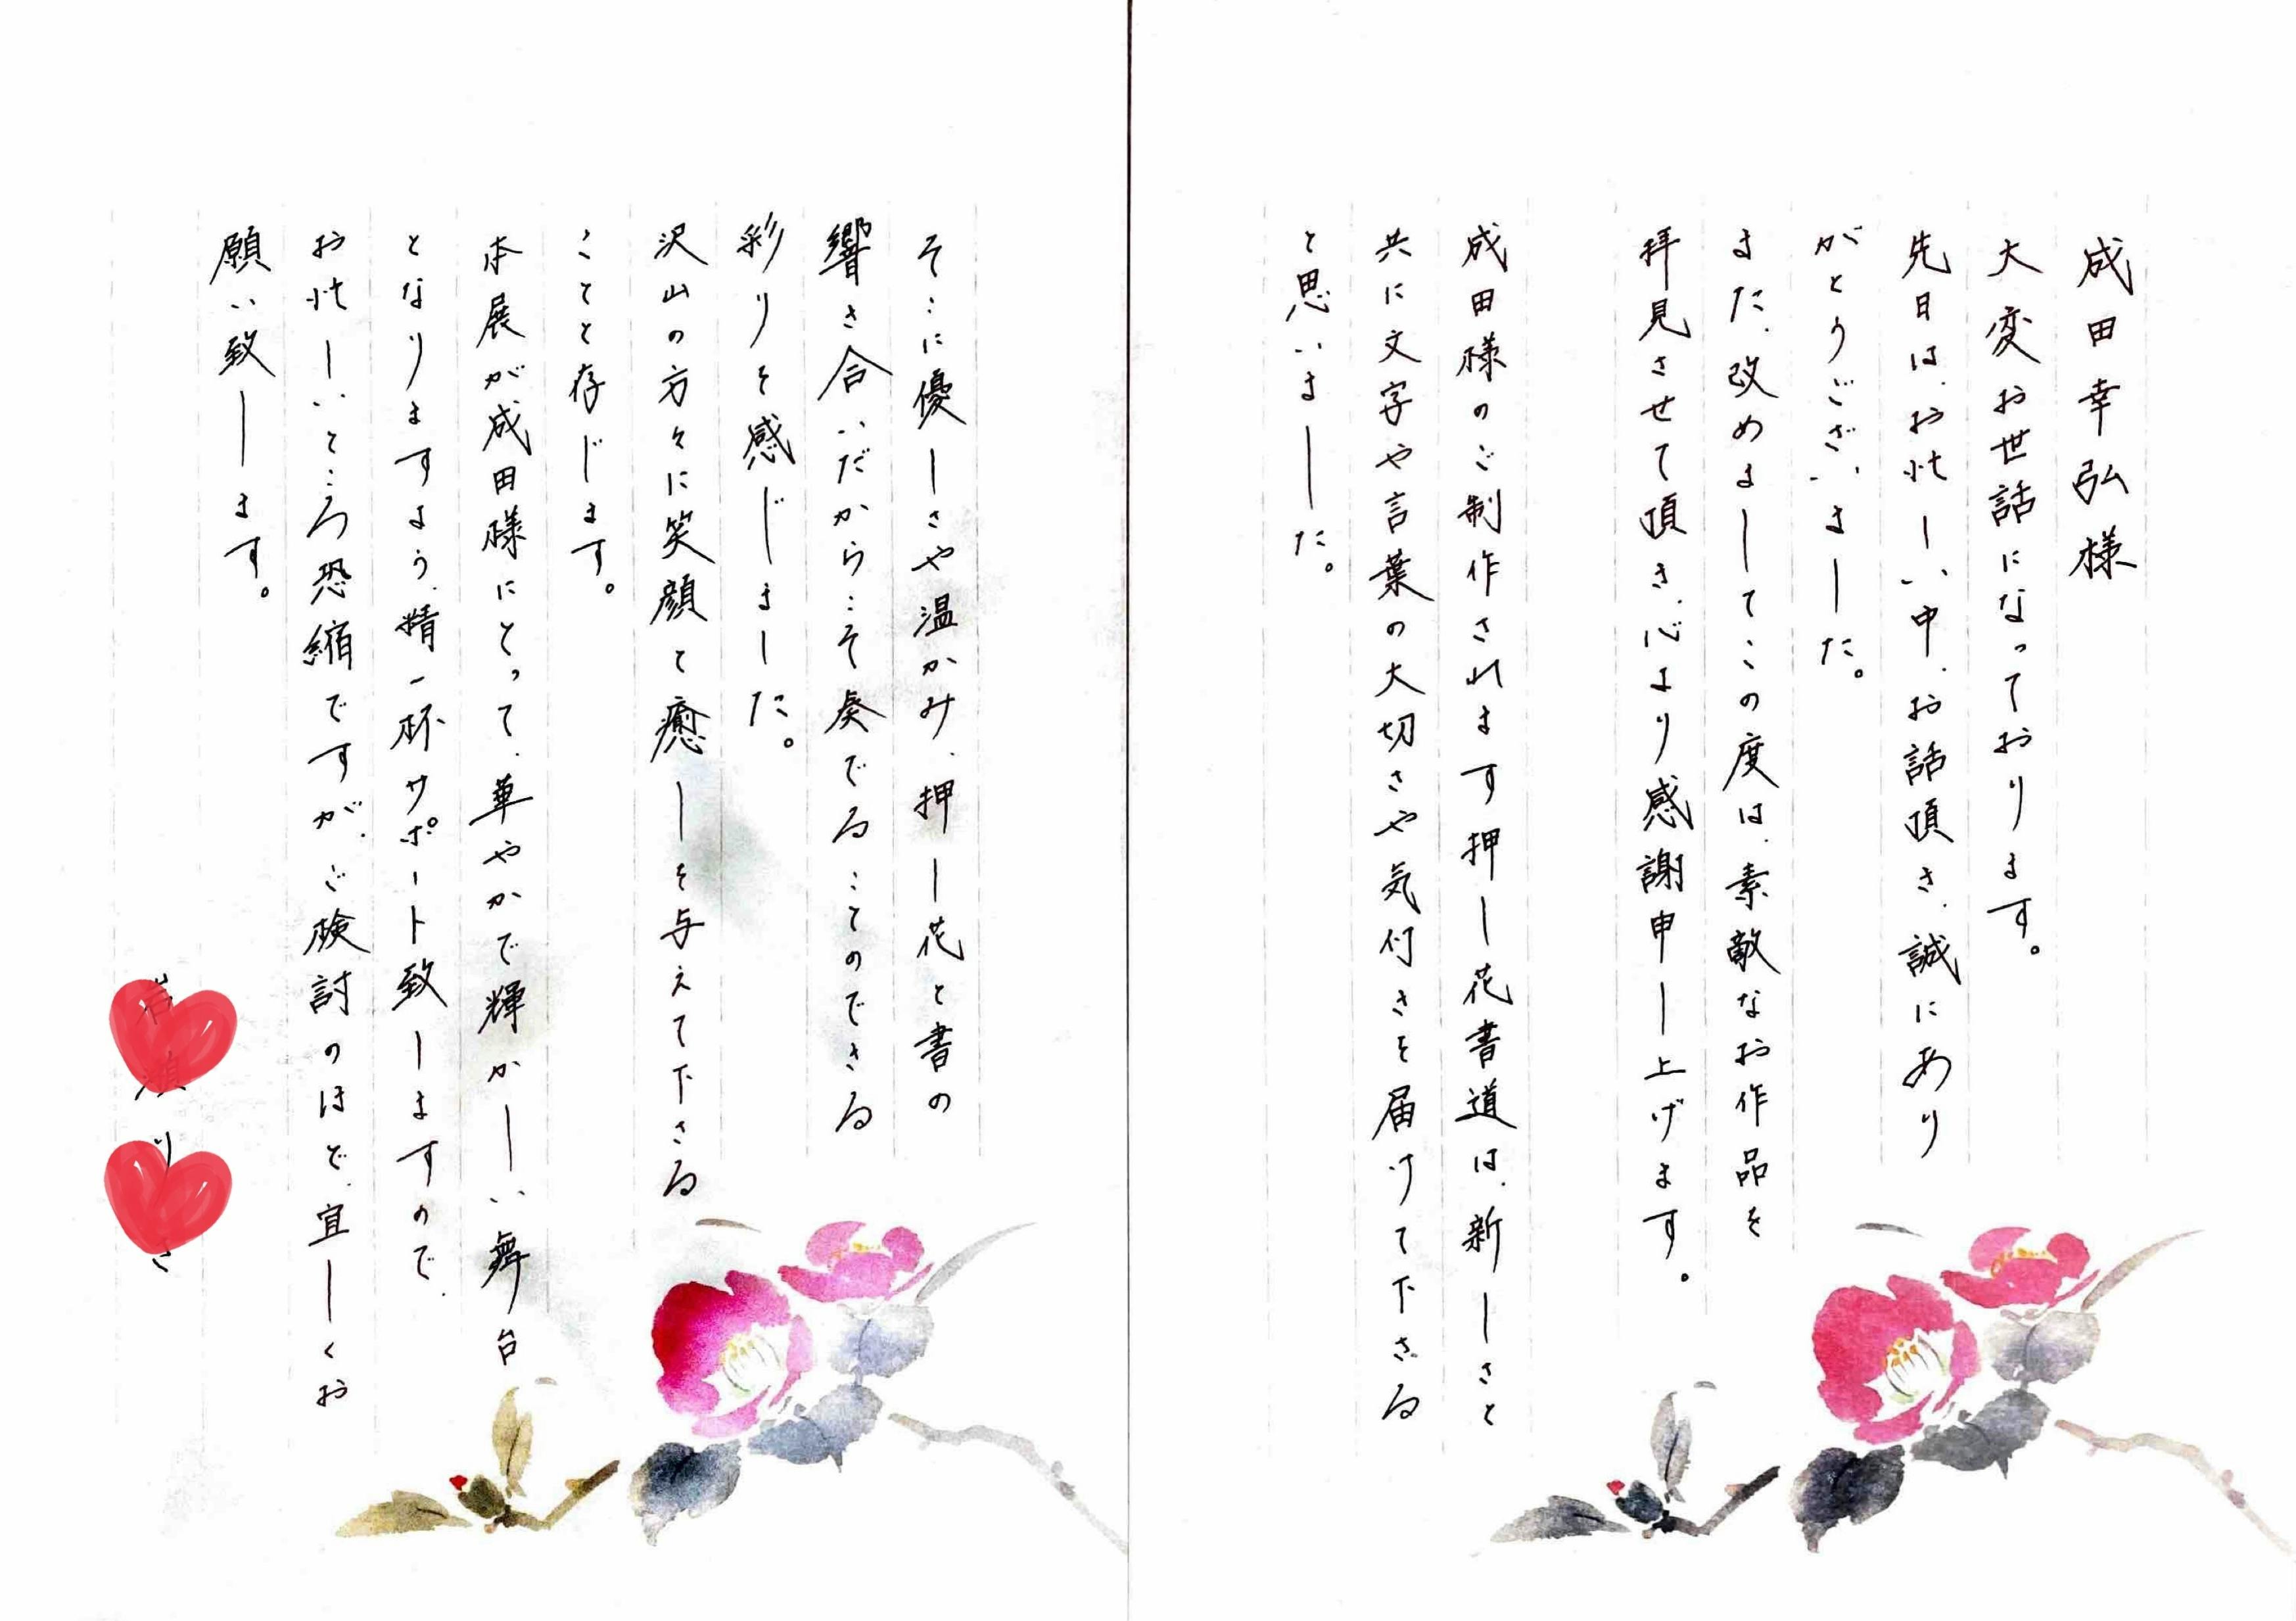 成田幸弘様
大変お世話になっております。
先日は、お忙しい中、お話頂き、誠にあり
がとうございました。
また、改めましてこの度は、素敵なお作品を
拝見させて頂き、心より感謝申し上げます。
成田様のご制作されます押し花書道は、新しさと
共に文字や言葉の大切さや気付きを届けて下さる
と思いました。
そこに優しさや温かみ、押し花と書の
響き合いだからこそ奏でることのできる
彩りを感じました。
沢山の方々に笑顔と癒しを与えて下さる
ことと存じます。
本展が成田様にとって、華やかで輝かしい舞台
となりますよう、精一杯サポート致しますので、
お忙しいところ恐縮ですが、ご検討のほど、宜しくお
願い致します。